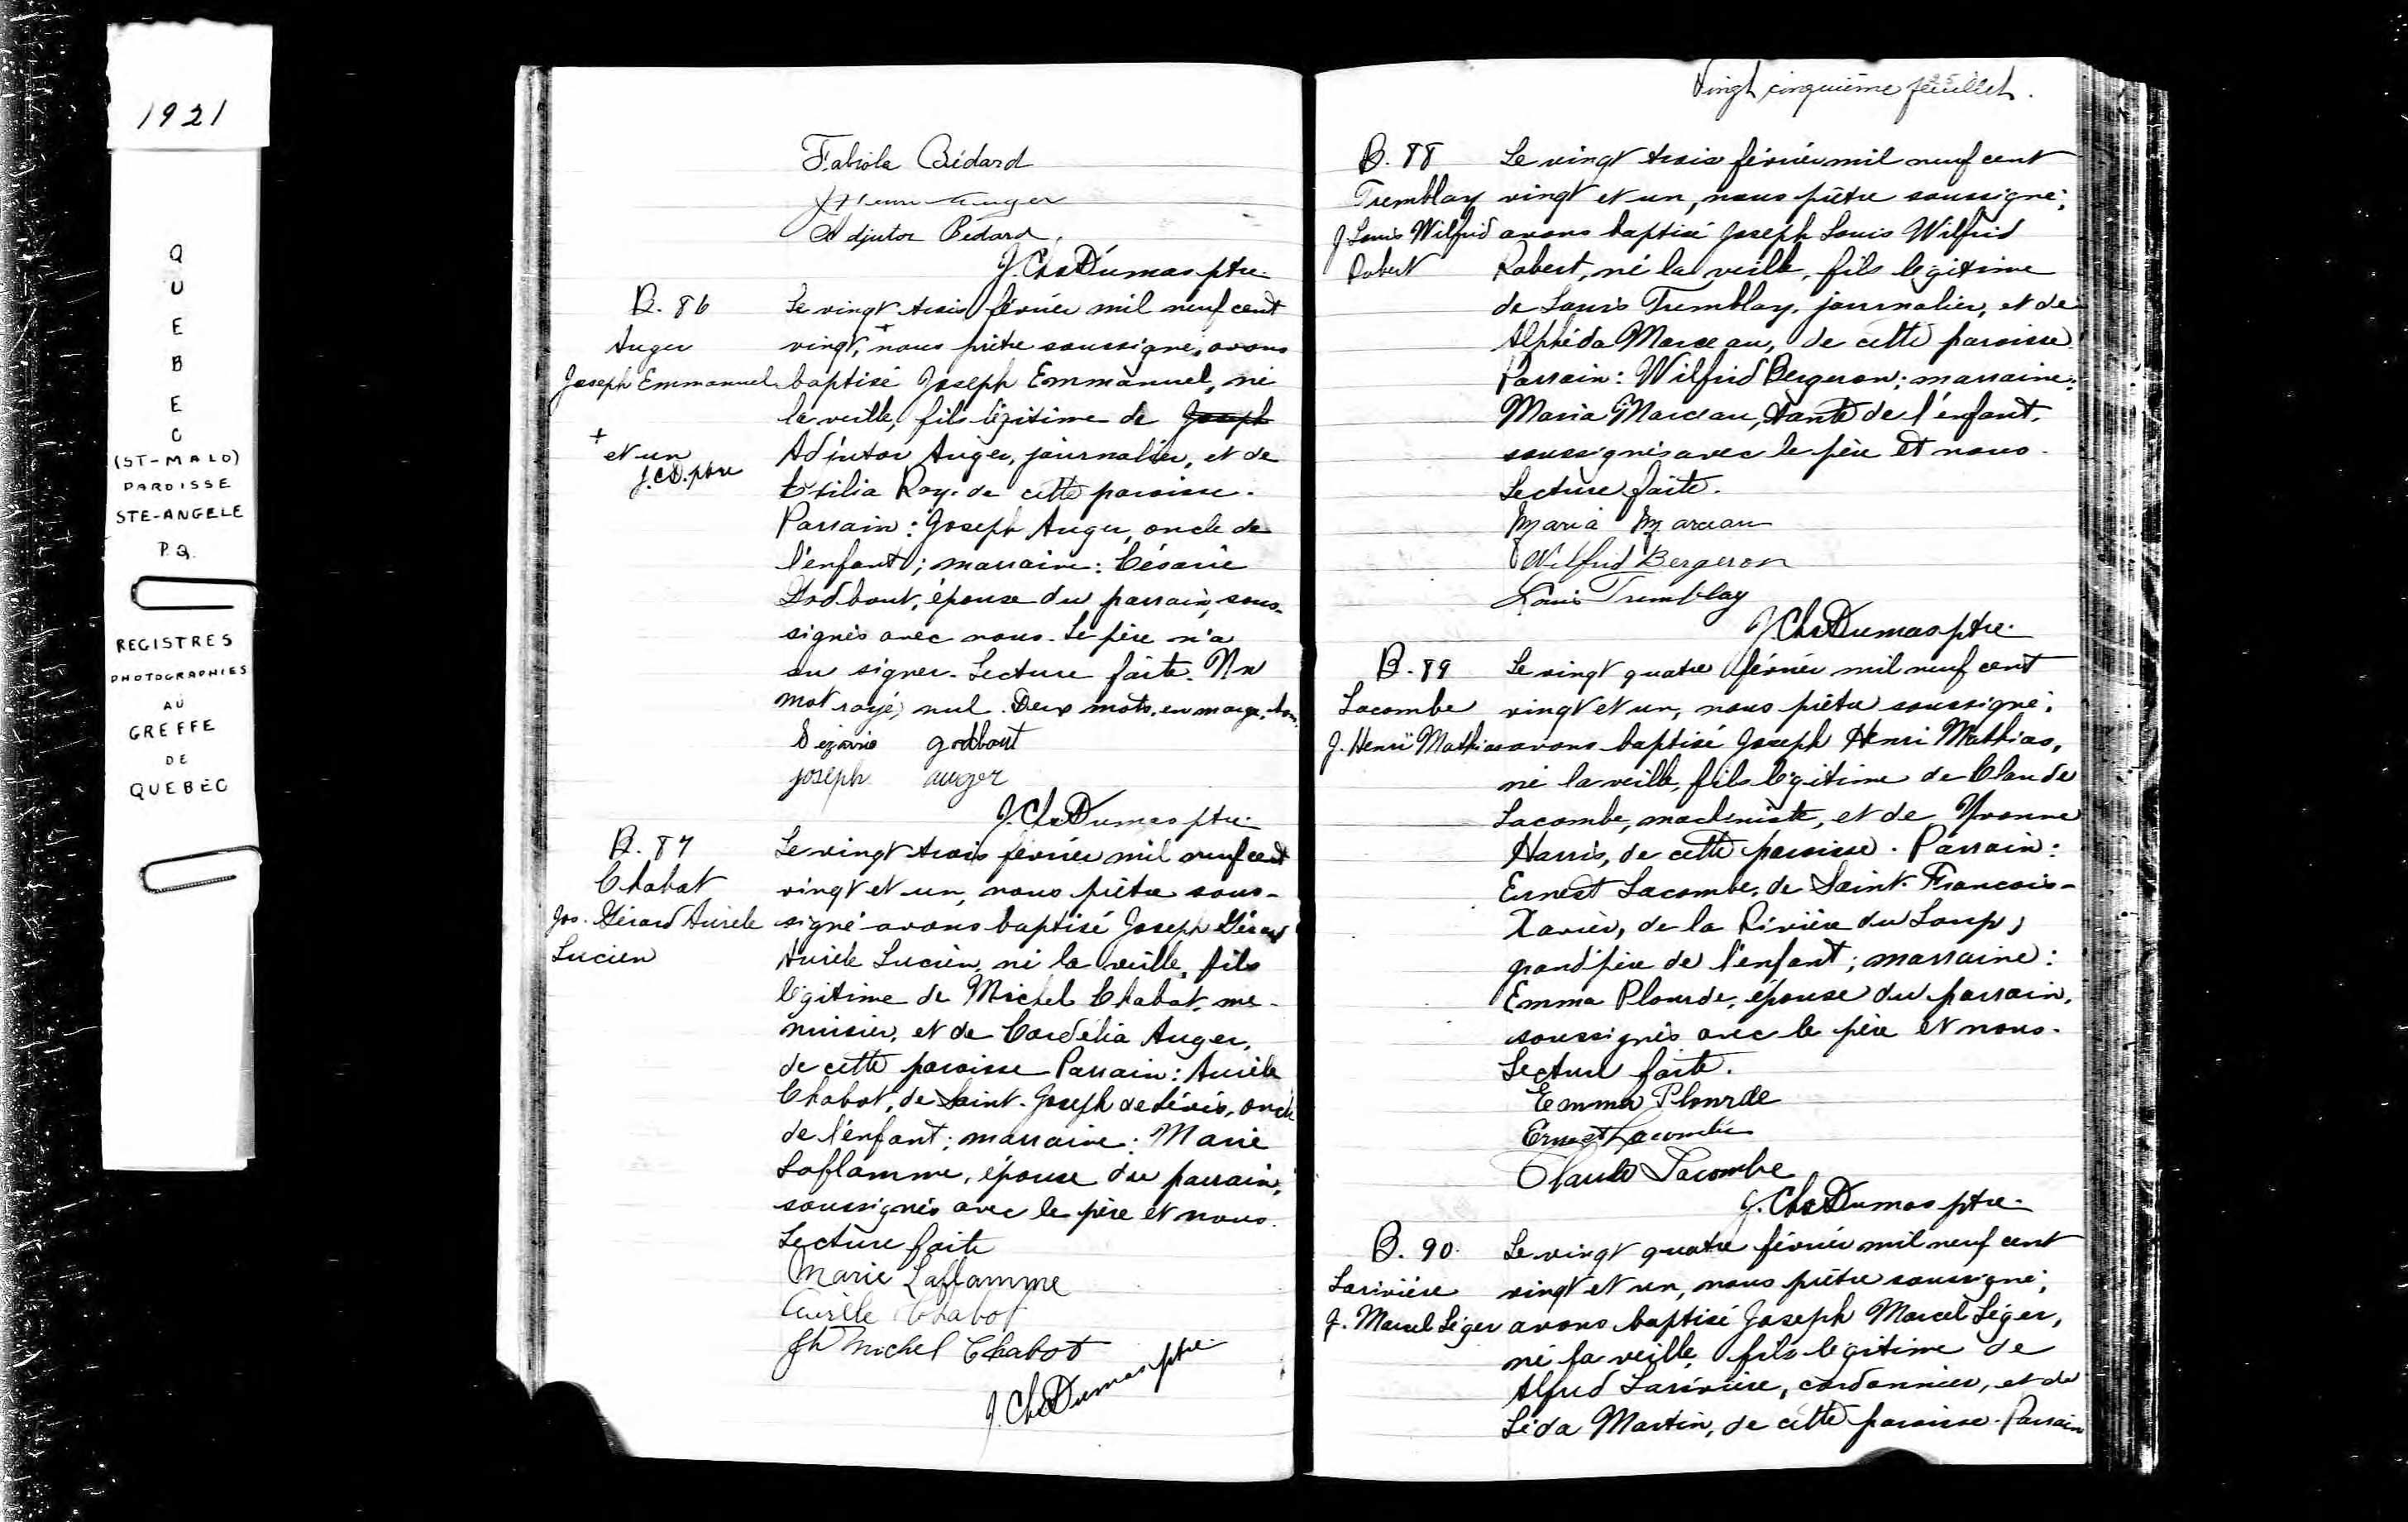 1921
QUEBEC
(ST-MALO)
PAROISSE
STE-ANGELE
P.Q.
REGISTRES
PHOTOGRAPHIES
AU
GREFFE
DE
QUEBEC
Fabiola Bédard
Auger
Adjutor Bédard,
J. Chs Dumas ptre.
B. 86
Auger
Joseph Emmanuel
+
et un
J.C.D. ptre
Le vingt trois février mil neuf cent
vingt, + nous prêtre soussigné, avons
baptisé Joseph Emmanuel, né
la veille, fils légitime de Joseph
Adjutor Auger, journalier, et de
Roy, de cette paroisse.
Parrain: Joseph Auger, oncle de
l'enfant; marraine: Césarie
Godbout, épouse du parrain, sous-
signés avec nous. Le père n'a
su signer. Lecture faite. Un
mot rayé, nul. Deux mots, en marge, bon.
godbout
joseph auger
J. Chs Dumas ptre.
B. 87
Chabot
Jos. Gérard Aurèle
Lucien
Le vingt trois février mil neuf cent
vingt et un, nous prêtre sous-
signé avons baptisé Joseph Gérard
Aurèle Lucien, né la veille, fils
légitime de Michel Chabot, me-
nuisier, et de Cordélia Auger,
de cette paroisse Parrain: Aurèle
Chabot, de Saint-Joseph de Lévis, oncle
de l'enfant; marraine: Marie
Laflamme, épouse du parrain,
soussignés avec le père et nous.
Lecture faite
Marie Laflamme
Aurèle Chabot
Jh Michel Chabot
J. Chs Dumas ptre.
25
Vingt cinquième feuillet.
B. 88
Tremblay
J. Louis Wilfrid
Robert
Le vingt trois février mil neuf cent
vingt et un, nous prêtre soussigné,
avons baptisé Joseph Louis Wilfrid
Robert, né la veille, fils légitime
de Louis Tremblay, journalier, et de
Alphéda Marceau, de cette paroisse.
Parrain: Wilfrid Bergeron; marraine:
Maria Marceau, tante de l'enfant,
soussignés avec le père et nous.
Lecture faite.
Maria Marceau
Wilfrid Bergeron
Louis Tremblay
J. Chs Dumas ptre.
B. 89
Lacombe
J. Henri Mathias
Le vingt quatre février mil neuf cent
vingt et un, nous prêtre soussigné,
avons baptisé Joseph Henri Mathias,
né la veille, fils légitime de Claude
Lacombe, machiniste, et de Yvonne
Harris, de cette paroisse. Parrain:
Ernest Lacombe, de Saint-François-
Xavier, de la Rivière du Loup,
grand'père de l'enfant; marraine:
Emma Plourde, épouse du parrain,
soussignés avec le père et nous.
Lecture faite.
Emma Plourde
Ernest Lacombe
Claude Lacombe
J. Chs Dumas ptre.
B. 90.
Larivière
J. Marcel Léger
Le vingt quatre février mil neuf cent
vingt et un, nous prêtre soussigné,
avons baptisé Joseph Marcel Léger,
né la veille, fils légitime de
Alfred Larivière, cordonnier, et de
Léda Martin, de cette paroisse. Parrain